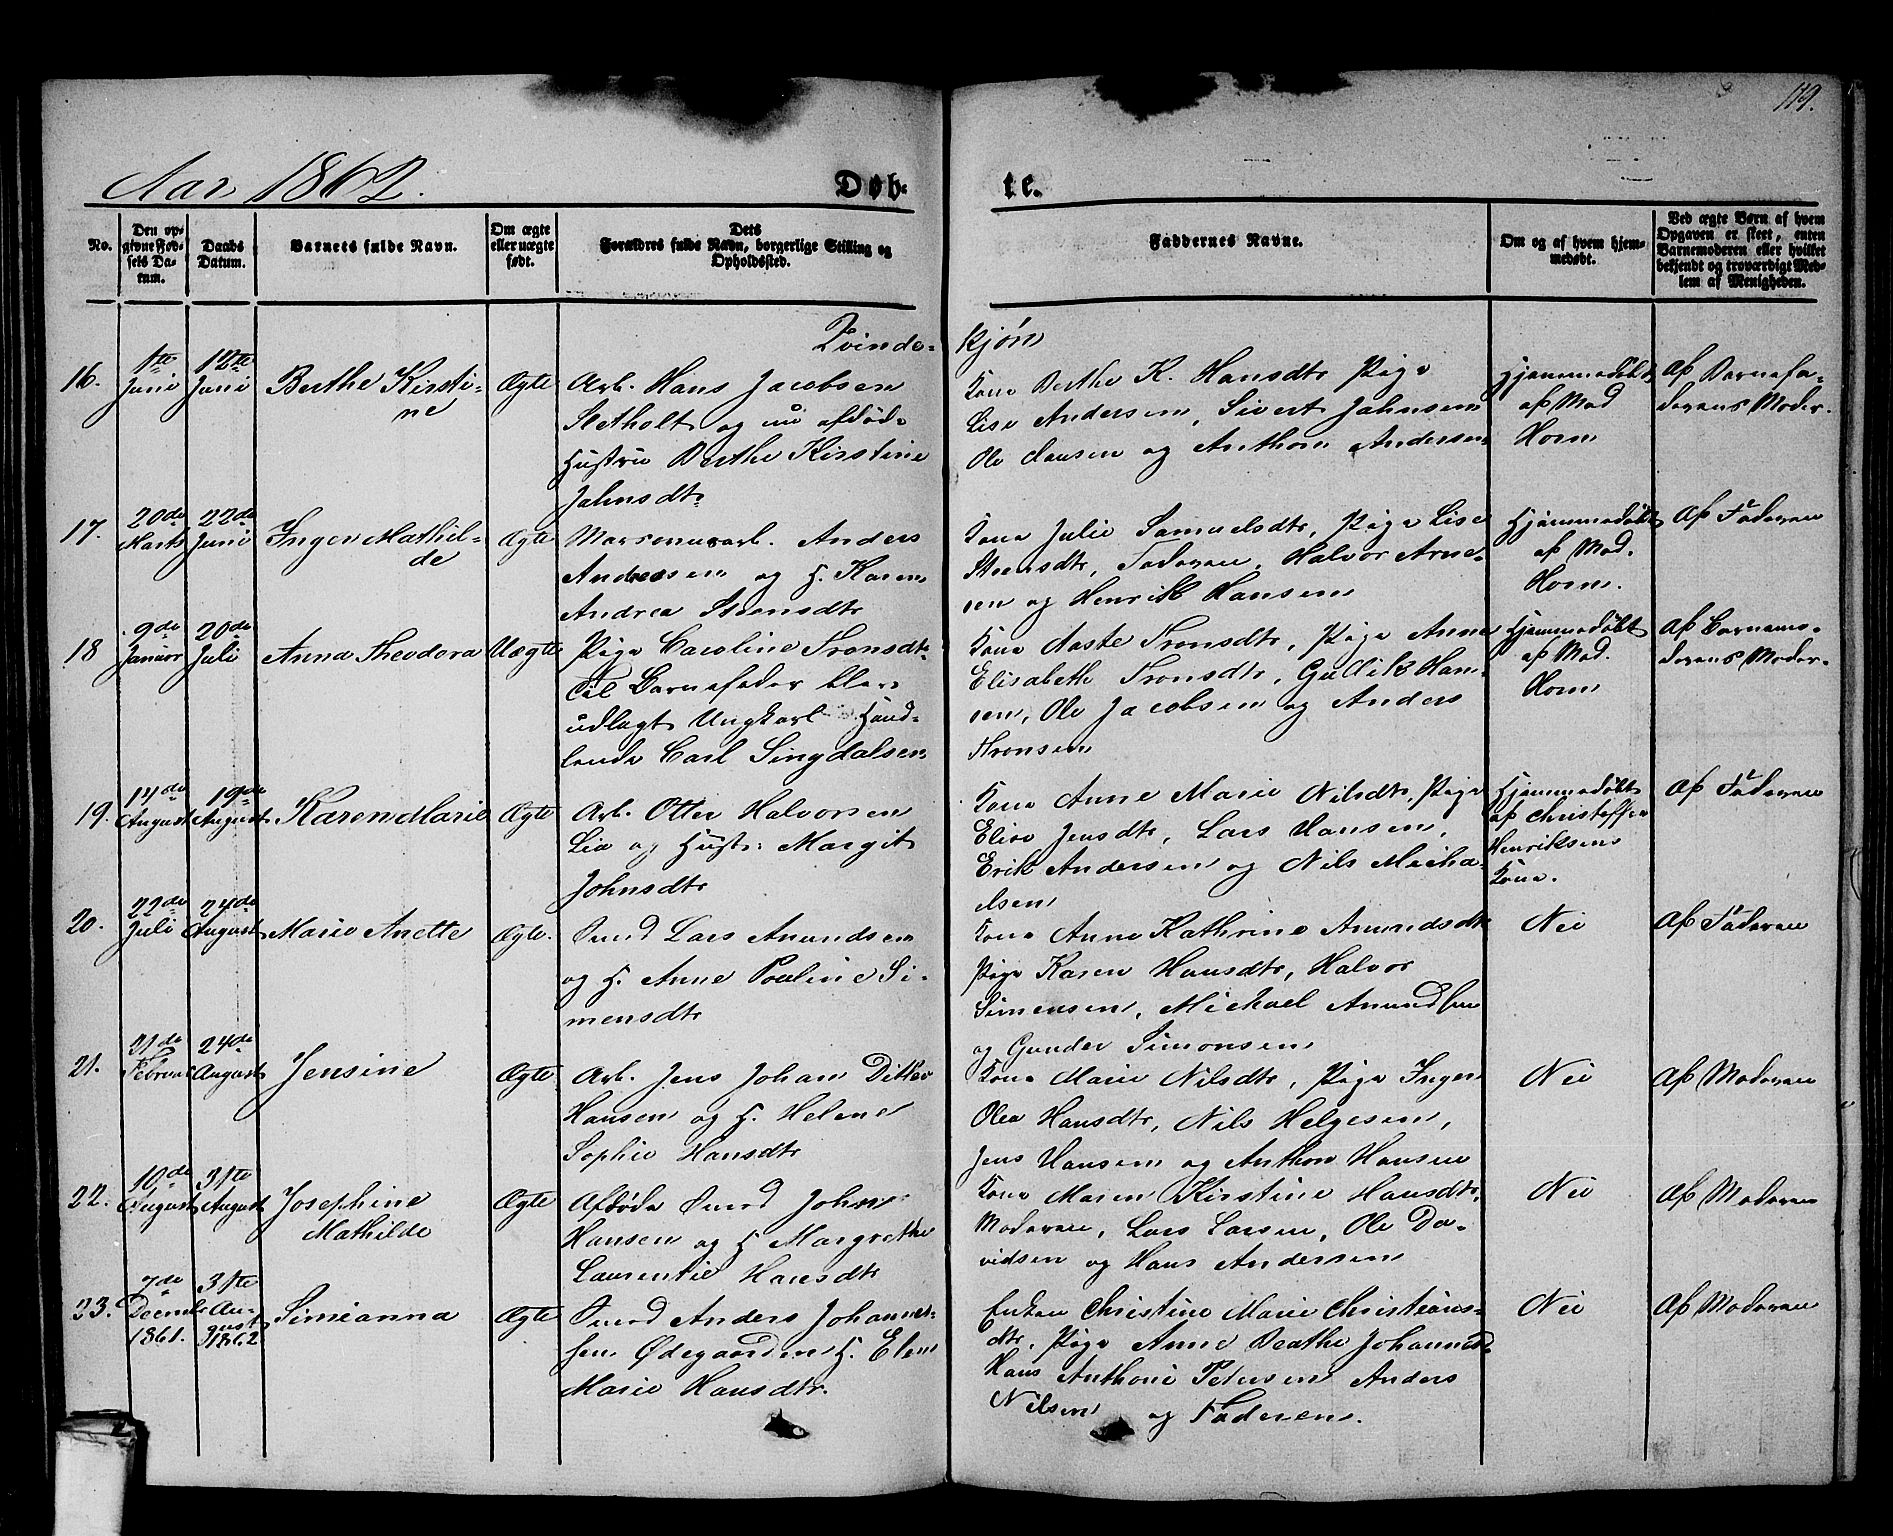 119.
Aar 1862.
Døb-
te.
No.
Den op-
givne Fød-
sels Da-
tum.
Daabs
Datum.
Barnets fulde Navn.
Om ægte
eller uægte
født.
Dets
Forældres fulde Navn, borgerlige Stilling og
Opholdssted.
Faddernes Navne.
Om og af hvem hjem-
medøbt.
Ved ægte Børn af hvem
Opgaven er skeet, enten
Barnemoderen eller hvilket
bekjendt og troværdigt Med-
lem af Menigheden.
Qvinde-
kjøn
16.
1te
Juni
12te
Juni
Berthe Kirsti-
ne
Ægte
Arb. Hans Jacobsen
Sletholt og nu afdød
Hustru Berthe Kirstine
Jahnsdtr
Kone Berthe K. Hansdtr Pige
Lise Andersen, Sivert Jahnsen
Ole Hansen og Anthon Andersen
Hjemmedøbt
af Mad
Horn
Af Barnefa-
derens Moder.
17.
20de
Marts
22de
Juni
Inger Mathil-
de
Ægte
Marsmusarb. Anders
Andresen og H. Karen
Andrea Steensdtr
Kone Julie Samuelsdtr, Pige Lise
Steensdtr, Faderen, Halvor Arne-
sen og Henrik Hansen
Hjemmedøbt
af Mad.
Horn.
Af Faderen
18
9de
Januar
20de
Juli
Anna Theodora
Uægte
Pige Caroline Tronsdtr
Til Barnefader blev
udlagt Ungkarl Hand-
lende Carl Singdalsen
Kone Aaste Tronsdtr, Pige Anne
Elisabeth Tronsdtr, Gullik Han-
sen, Ole Jacobsen og Anders
Tronsen
Hjemmedøbt
af Mad.
Horn
Af Barnemo-
derens Moder.
19.
14de
August
19de
August
Karen Marie
Ægte
Arb. Otter Halvorsen
Lie og Hustr: Margit
Johnsdtr
Kone Anne Marie Nilsdtr, Pige
Elise Jensdtr, Lars Hansen,
Erik Andersen og Nils Micha-
elsen
Hjemmedøbt
af Christoffer
Henriksens
Kone.
Af Faderen
20.
22de
Juli
24de
August
Marie Anette
Ægte.
Smed Lars Amundsen
og H. Anne Pouline Si-
mensdtr
Kone Anne Kathrine Amundsdtr
Pige Karen Hansdtr, Halvor
Simensen, Michael Amundsen
og Gunder Simonsen
Nei
Af Faderen
21.
21de
Februar
24de
August
Jensine
Ægte
Arb. Jens Johan Ditlev
Hansen og H. Helene
Sophie Hansdtr
Kone Marie Nilsdtr, Pige Inger
Olea Hansdtr, Nils Helgesen,
Jens Hansen og Anthon Hansen
Nei
Af Moderen
22.
10de
August
31te
August
Josephine
Mathilde
Ægte
Afdøde Smed John
Hansen og H Margrethe
Laurentie Hansdtr
Kone Maren Kirstine Hansdtr,
Moderen, Lars Larsen, Ole Da-
vidsen og Hans Andersen
Nei
Af Moderen
23.
7de
Decembr
1861.
31te
Au-
gust
1862
Simianna
Ægte
Smed Anders Johannes-
sen Ødegaarden H. Elen
Marie Hansdtr.
Enken Christine Marie Christians-
dtr, Pige Anne Beathe Johannesd.
Hans Anthoni Petersen Anders
Nilsen og Faderen.
Nei
Af Moderen